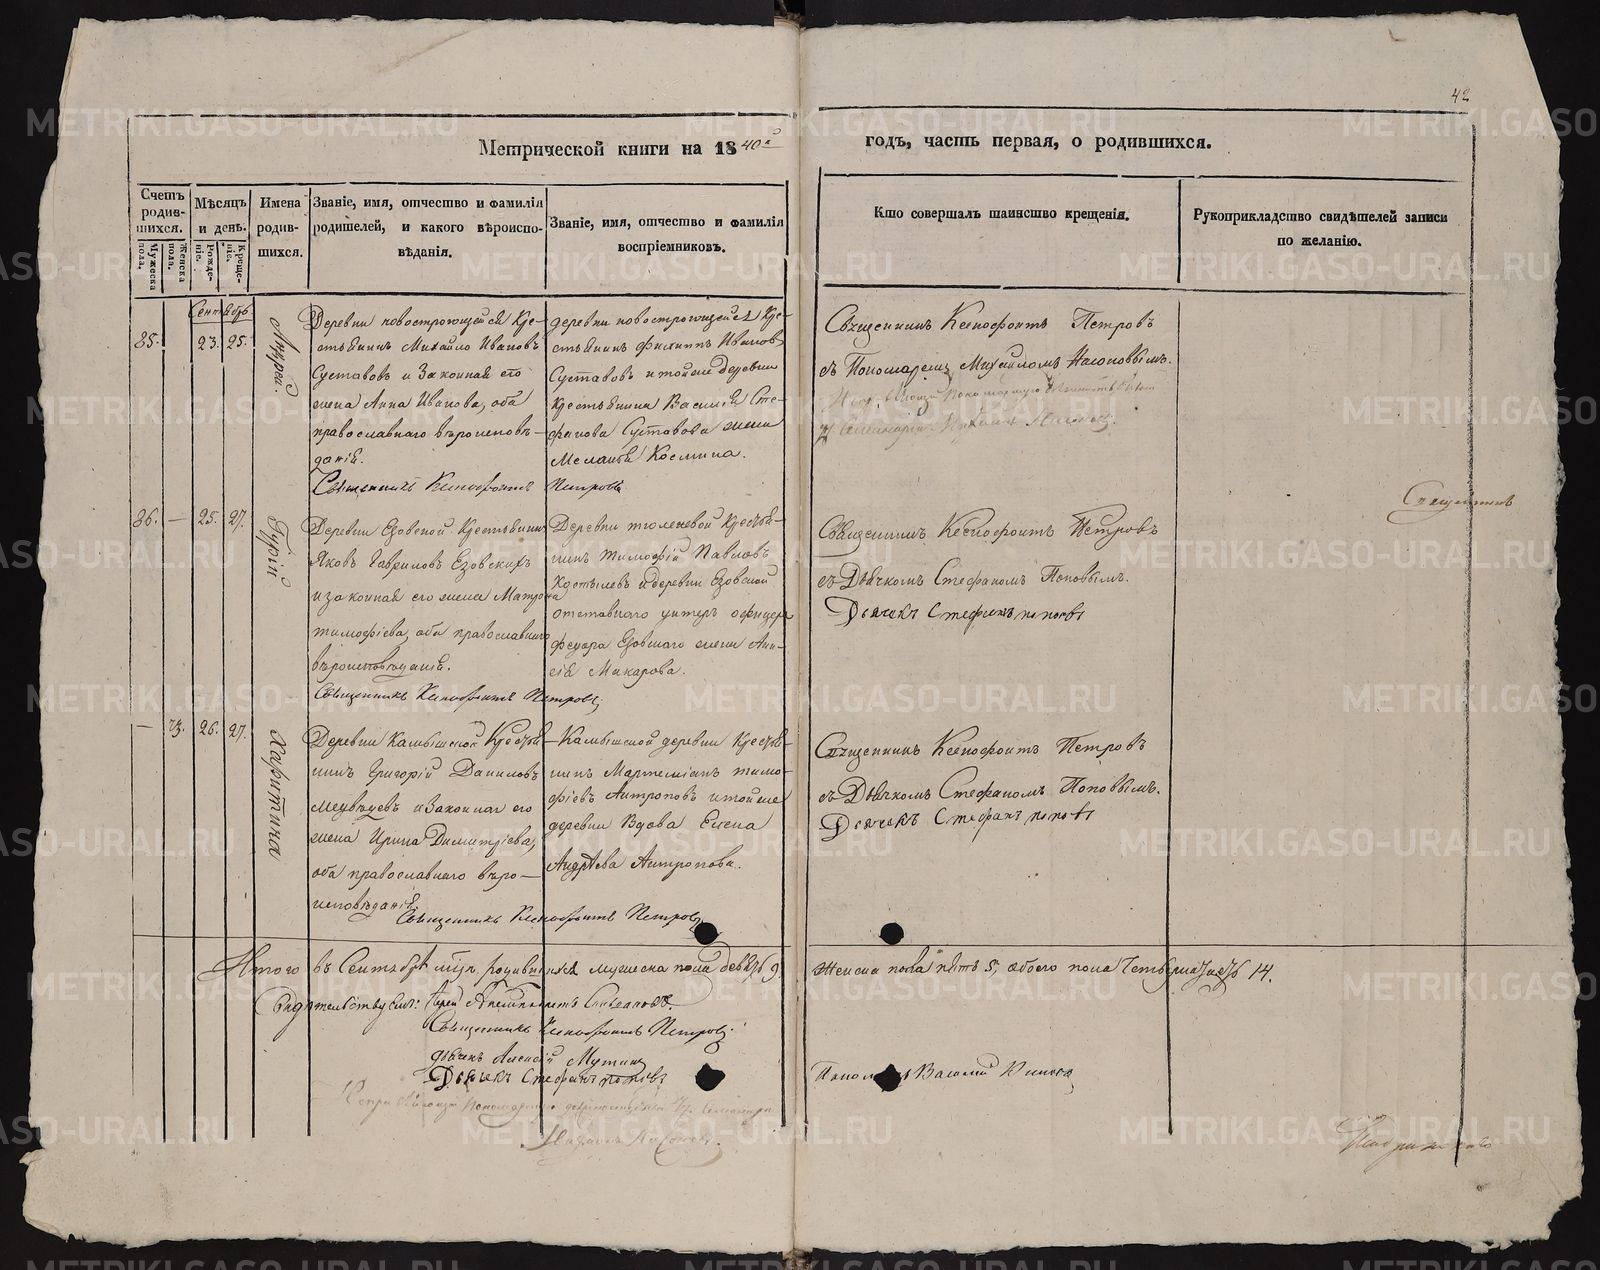 42
Метрической книги на 1840й
годъ, часть первая, о родившихся.
Счетъ родив- шихся.
Мужеска пола.
Женска пола.
Мѣсяцъ и день.
Рожде- нїе.
Креще- нїе.
Имена родив- шихся.
Званіе, имя, отчество и фамилія родителей, и какого вѣроиспо- вѣданія.
Званіе, имя, отчество и фамилія воспріемниковъ.
Кто совершалъ таинство крещенія.
Рукоприкладство свидѣтелей записи по желанію.
Сентябрь
85.
23. 25.
Андрей.
Деревни новостроющейся Кре-
стьянинъ Михайло Ивановъ
Суставовъ и Законная его
жена Анна Иванова, оба
православнаго вѣроисповѣ-
данія.
Священникъ Ксенофонтъ Петровъ
деревни новостроющейся Кре-
стьянинъ Филиппъ Ивановъ
Суставовъ и тойже деревни
крестьянина Василія Сте-
фанова Суставова жена
Меланія Космина.
Священникъ Ксенофонтъ Петровъ
съ Пономаремъ Михайломъ Насоновымъ.
86. — 25. 27.
Гурій
Деревни Езовской Крестьянинъ
Яковъ Гавриловъ Езовскихъ
и законная его жена Матрона
тимофіева, оба православнаго
вѣроисповѣданія.
Священникъ Ксенофонтъ Петровъ
Деревни тюленевой Крестья-
нинъ Тимофій Павловъ
Костылевъ и деревни Езовской
отставнаго унтеръ офицера
Федора Езовскаго жена Ани-
сія Макарова.
Священникъ Ксенофонтъ Петровъ
съ Дьячкомъ Стефаномъ Поповымъ.
Дьячекъ Стефанъ поповъ
Священникъ
— 73. 26. 27.
Харитина
Деревни Камышской Крестья-
нинъ Григорій Даниловъ
Медвѣдевъ и Законная его
жена Ирина Димитріева,
оба православнаго вѣро-
исповѣданія.
Священникъ Ксенофонтъ Петровъ
Камышской деревни Крестья-
нинъ Мартеміанъ тимо-
фіевъ Антроповъ и тойже
деревни Вдова Елена
Андрѣева Антропова.
Священникъ Ксенофонтъ Петровъ
съ Дьячкомъ Стефаномъ Поповымъ.
Дьячекъ Стефанъ поповъ
Итого въ Сентябрѣ мцѣ родившихся мужеска пола девять 9, женска пола пять 5, обоего пола Четырнадцать 14.
Свидѣтельствуемъ: Іерей Стефановъ
Священникъ Ксенофонтъ Петровъ
дьячекъ Алексѣй Мутинъ
Дьячекъ Стефанъ поповъ
Пономарь Василій